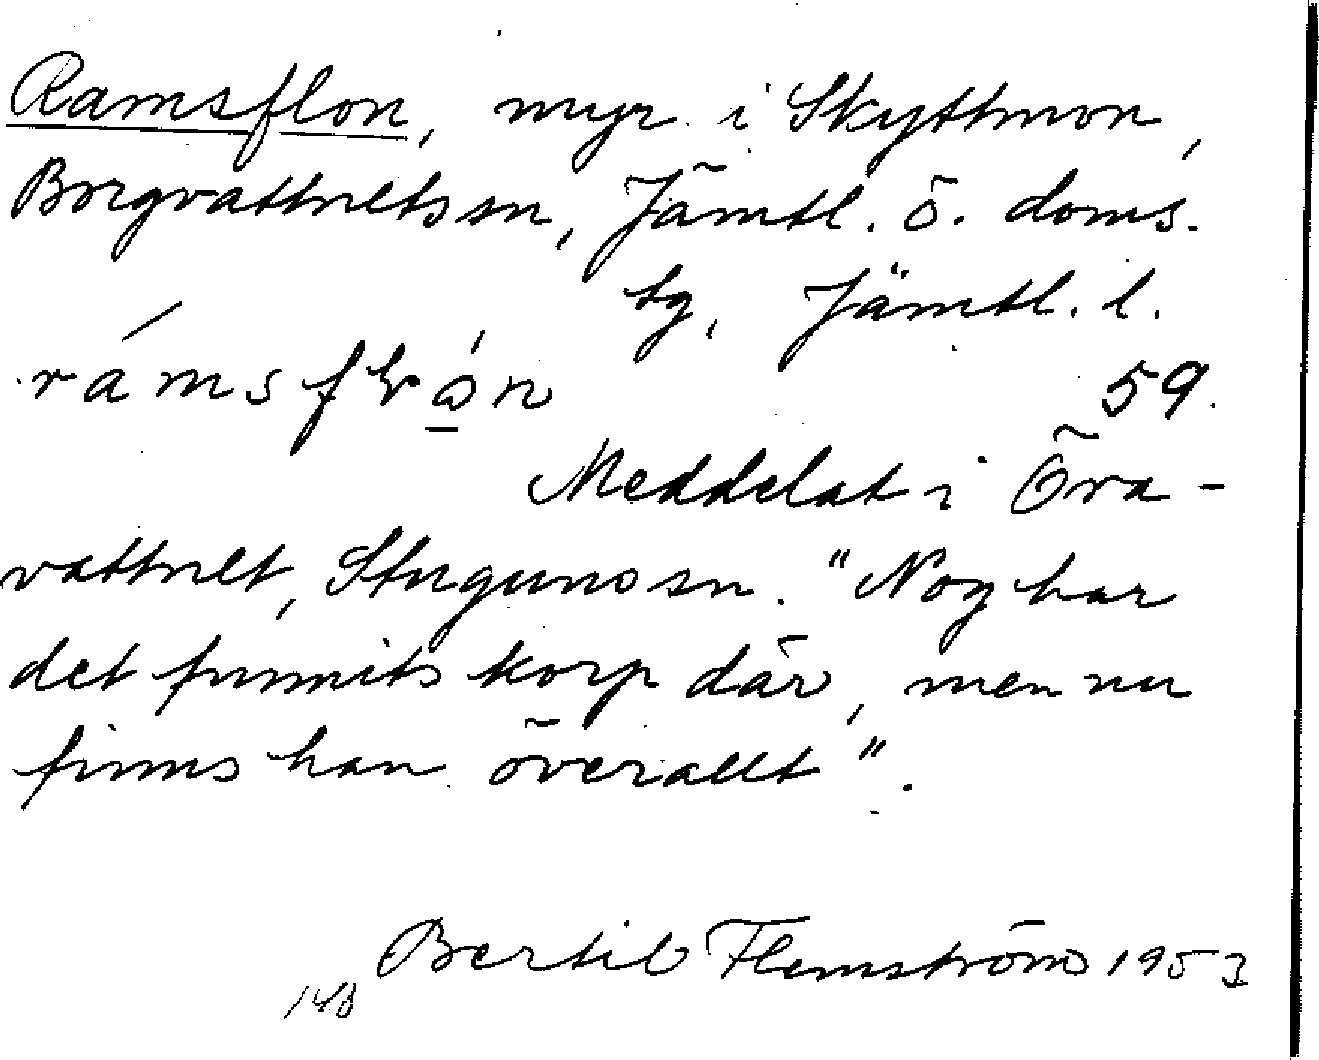 Ramsflon, myr i Skyttmon,
Borgvattnets sn, Jämtl. ö. doms.
tg, Jämtl. l.
59.
Meddelat i Öra-
vattnet, Stuguns sn. "Nog har
det funnits korp där, men nu
finns han överallt".
Bertil Flemström 1953
148